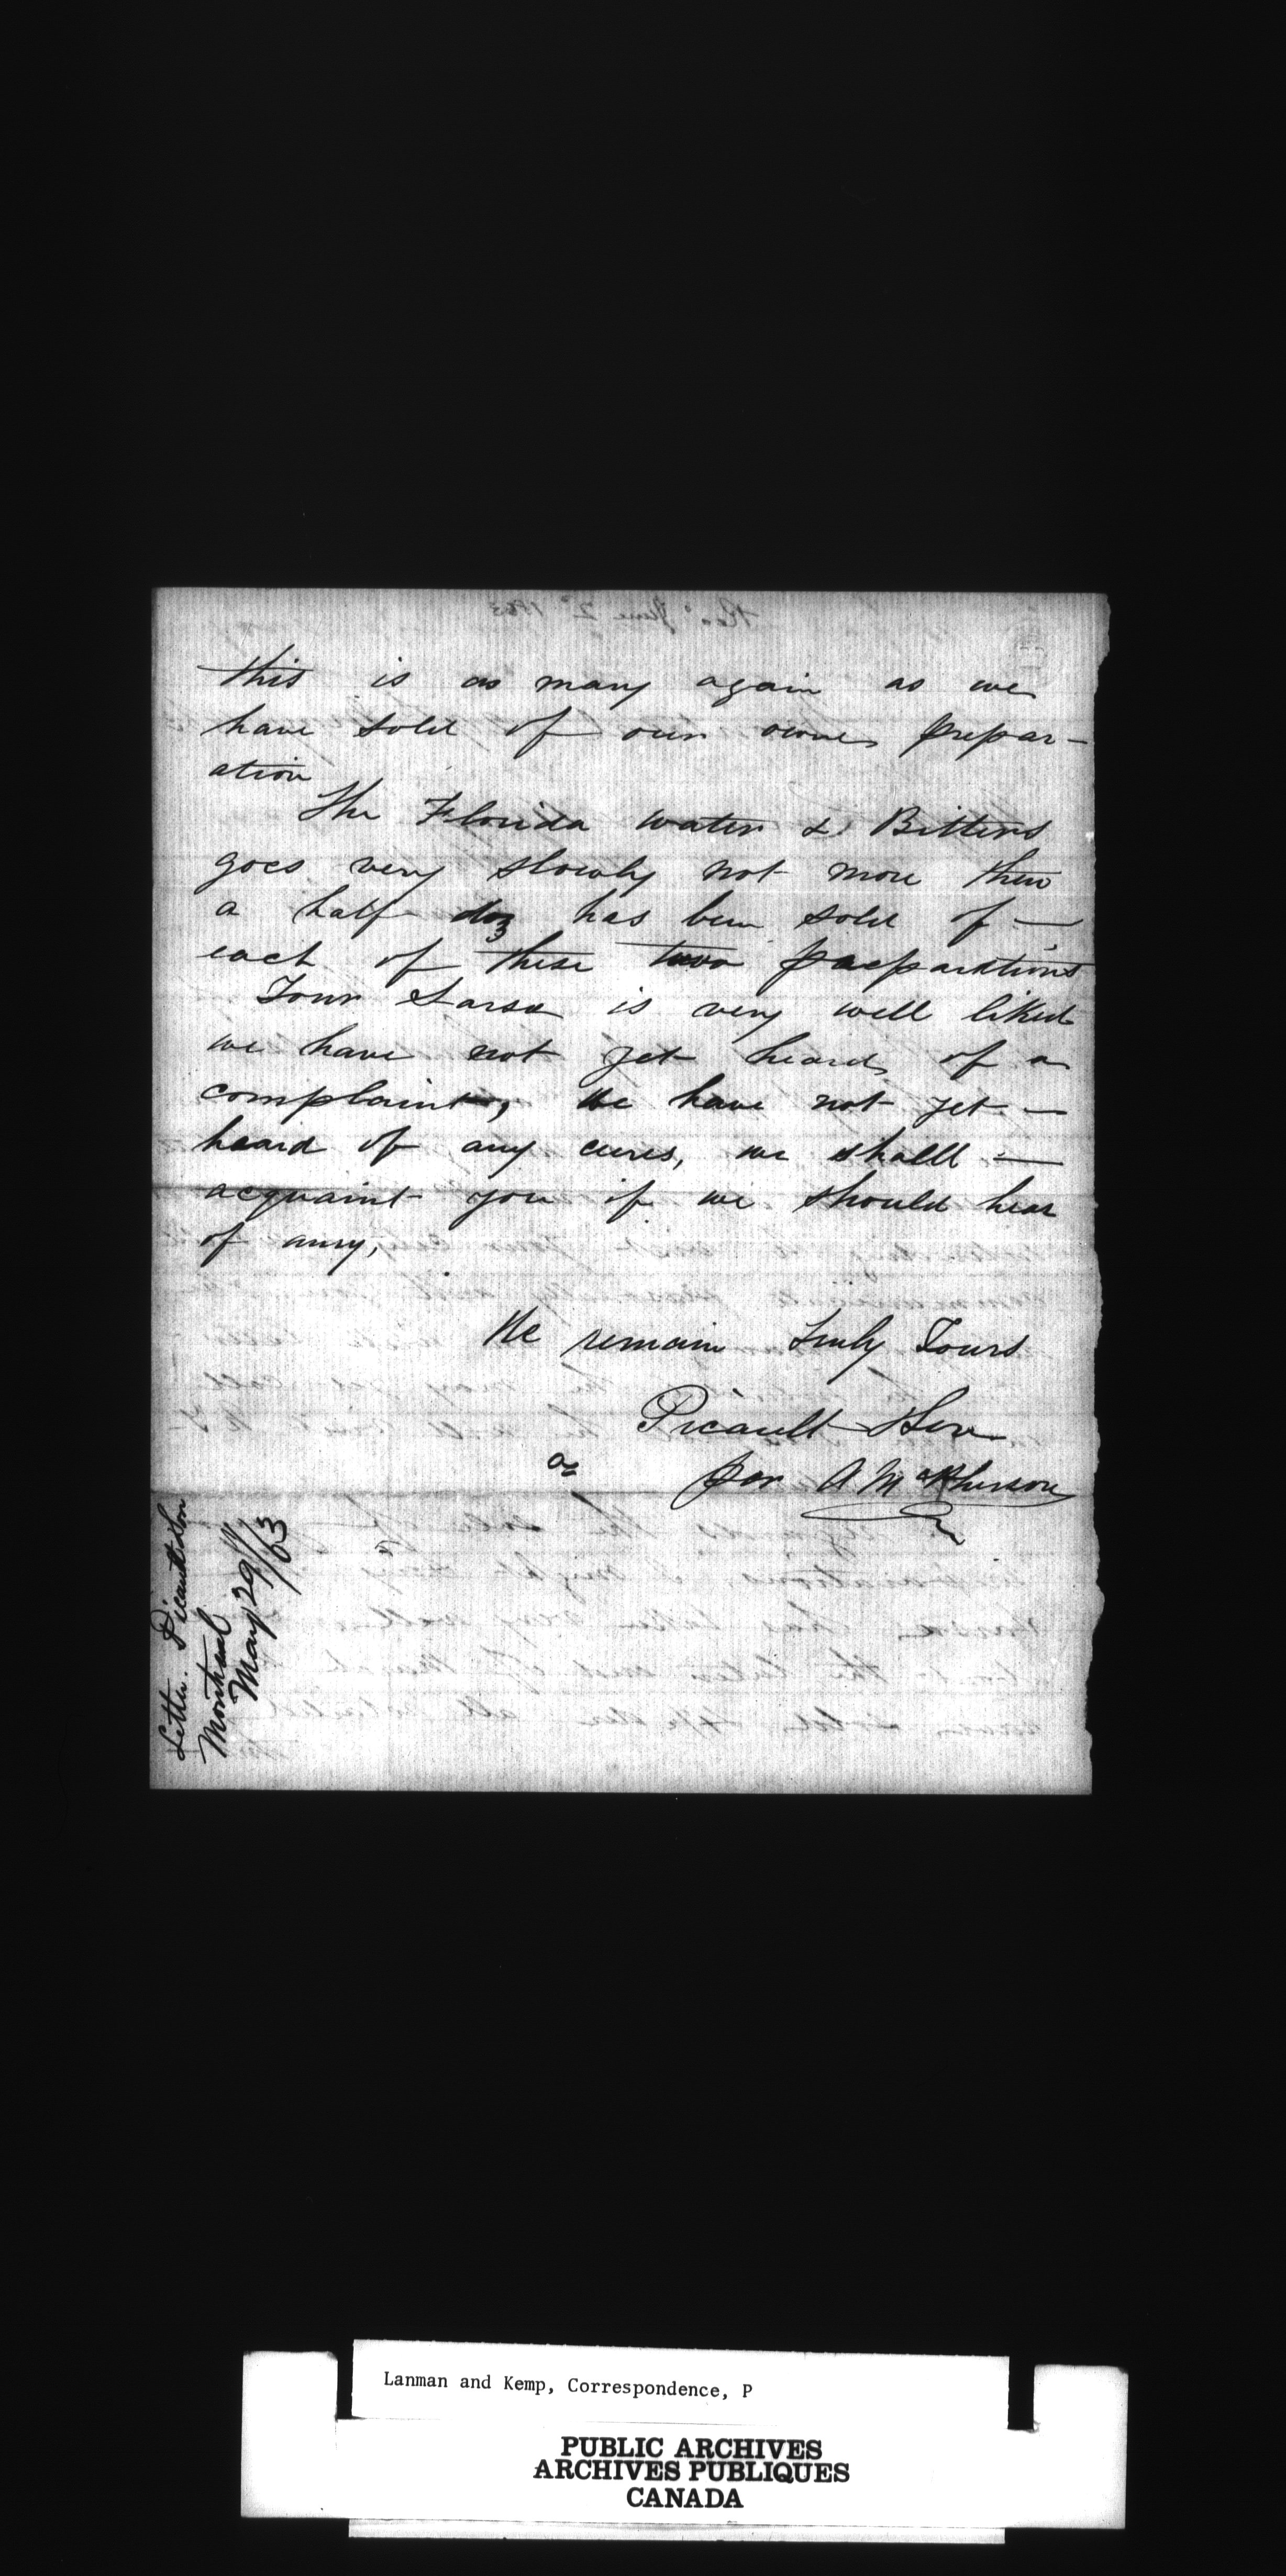 this is as many again as we
have sold of our owne prepar-
ation
The Florida water & Bitters
goes very slowly not more then
a half doz has been sold of —
each of these two preparations
Your Sarsa is very well liked
we have not yet heard of a
complaint, We have not yet —
heard of any cures, we shall —
acquaint you if we should hear
of any,
We remain truly Yours
Picault & Son
per A McPherson
Letter. Picault & Son
Montreal
May 29th/63
Lanman and Kemp, Correspondence, P
PUBLIC ARCHIVES
ARCHIVES PUBLIQUES
CANADA